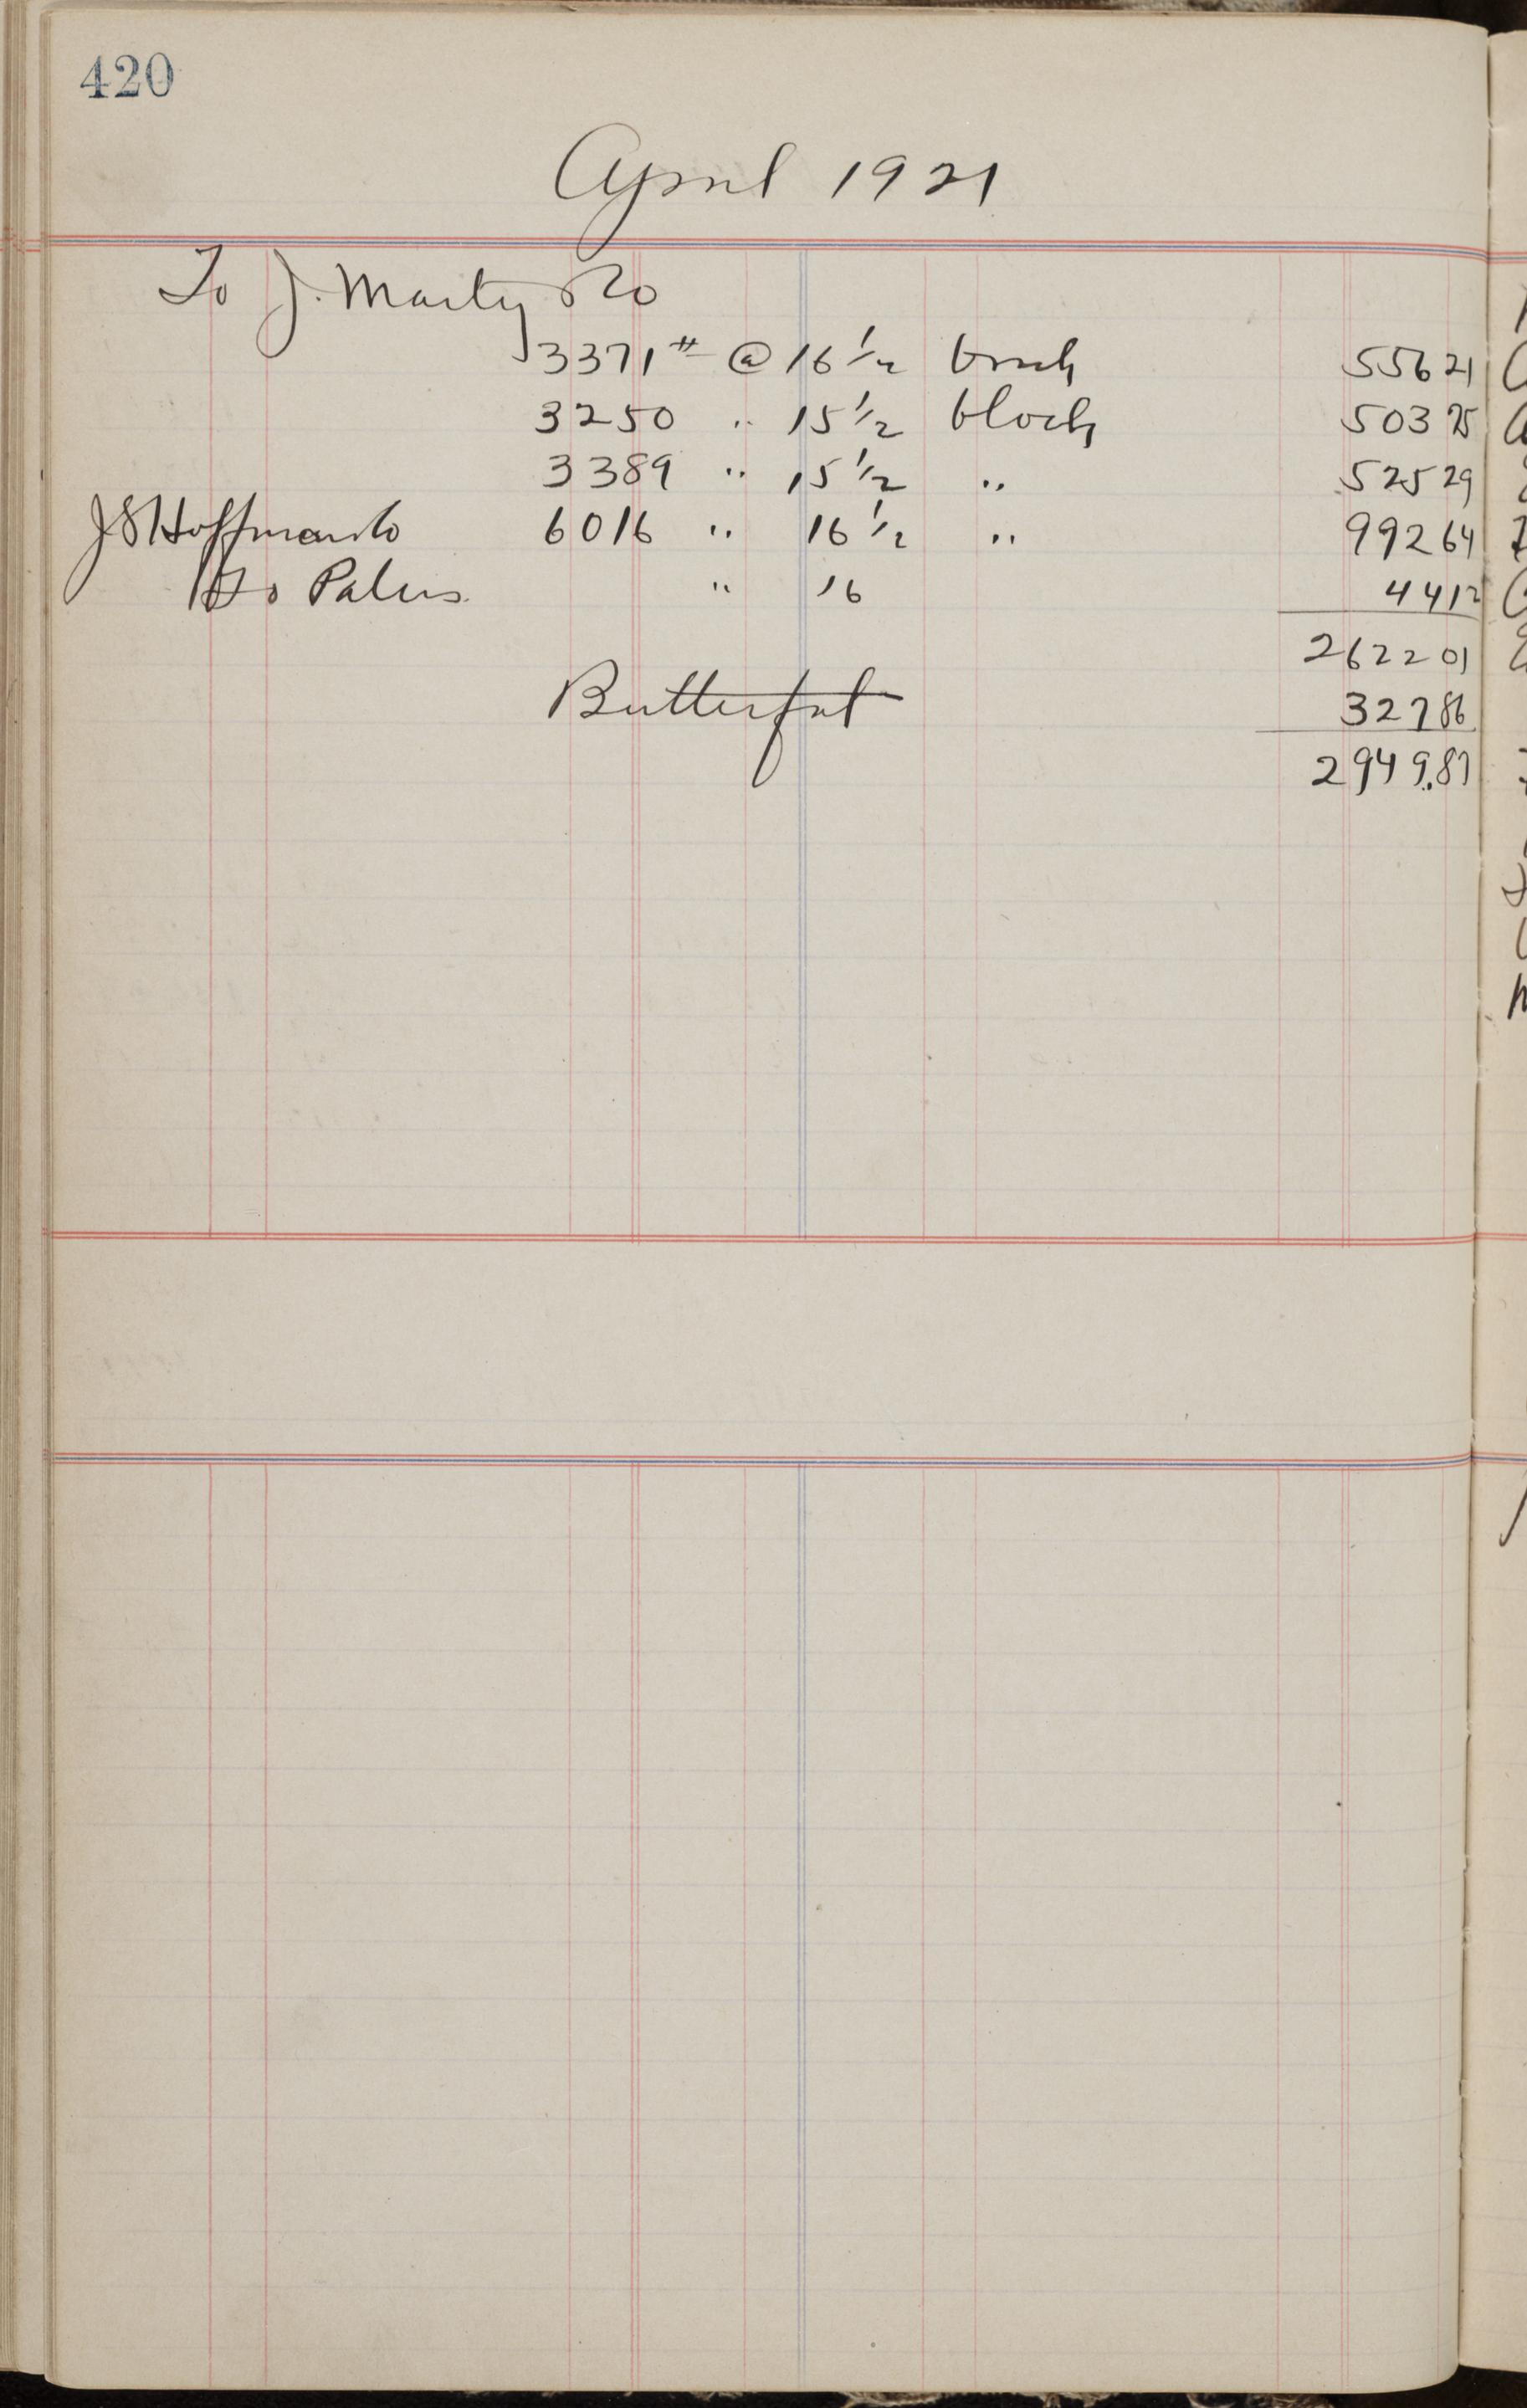 420
April 1921
To J. Marty & Co
3371# @ 16 1/2 brick 556 21
3250 " 15 1/2 block 503 75
3389 " 15 1/2 " 525 29
J S Hoffman Co 6016 " 16 1/2 " 992 64
To " 16 44 12
2622 01
Butterfat 327 86
2949.87